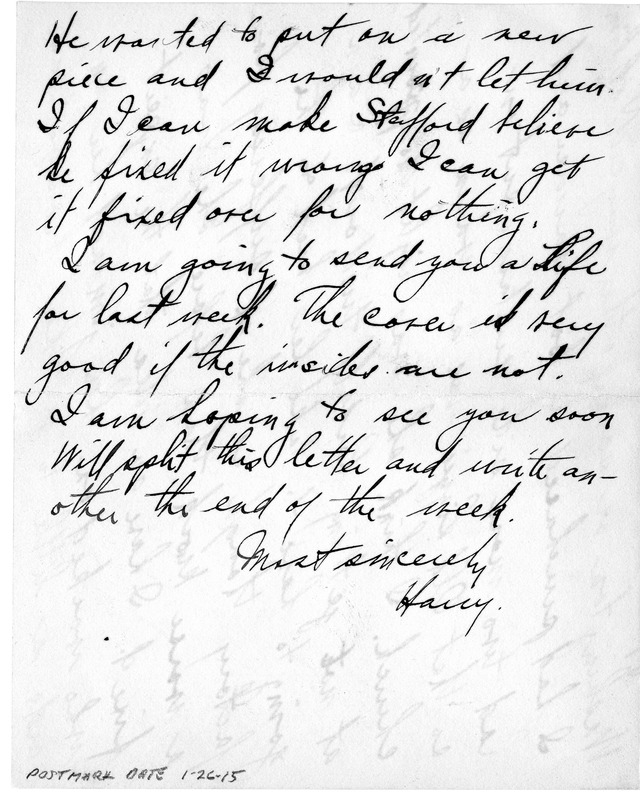 He wanted to put on a new
piece and I would n't let him.
If I can make Stafford believe
he fixed it wrong I can get
it fixed over for nothing.
I am going to send you a Life
for last week. The cover is very
good if the insides are not.
I am hoping to see you soon
Will split this letter and write an-
other the end of the week.
Most sincerely
Harry.
POSTMARK DATE 1-26-15